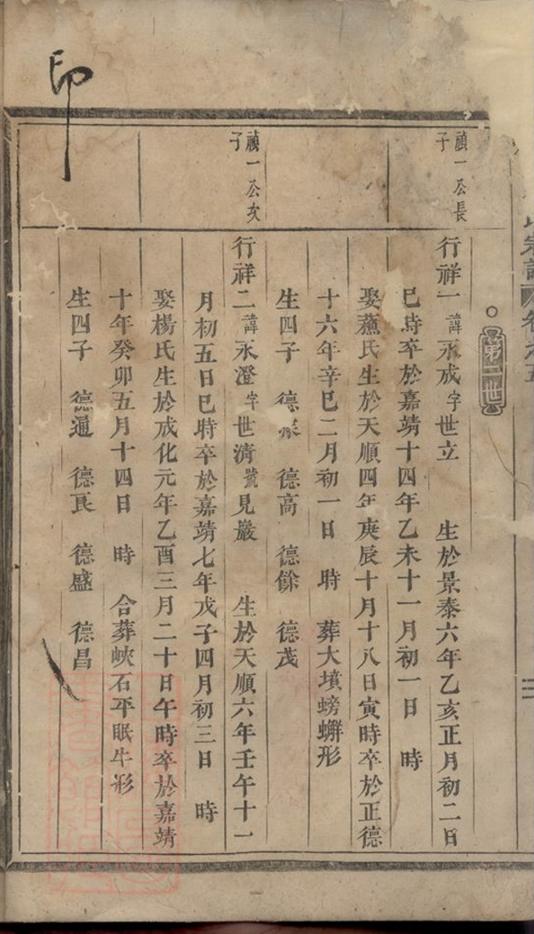 印
氏宗譜 卷之五
第二世
禎一公長子
行祥一諱永成字世立 生於景泰六年乙亥正月初二日
巳時卒於嘉靖十四年乙未十一月初一日 時
娶蕭氏生於天順四年庚辰十月十八日寅時卒於正德
十六年辛巳二月初一日 時 葬大墳螃蠏形
生四子 德 德高 德餘 德茂
禎一公次子
行祥二諱永澄字世濟號見巖 生於天順六年壬午十一
月初五日巳時卒於嘉靖七年戊子四月初三日 時
娶楊氏生於成化元年乙酉三月二十日午時卒於嘉靖
十年癸卯五月十四日 時 合葬峽石平眠牛形
生四子 德通 德良 德盛 德昌